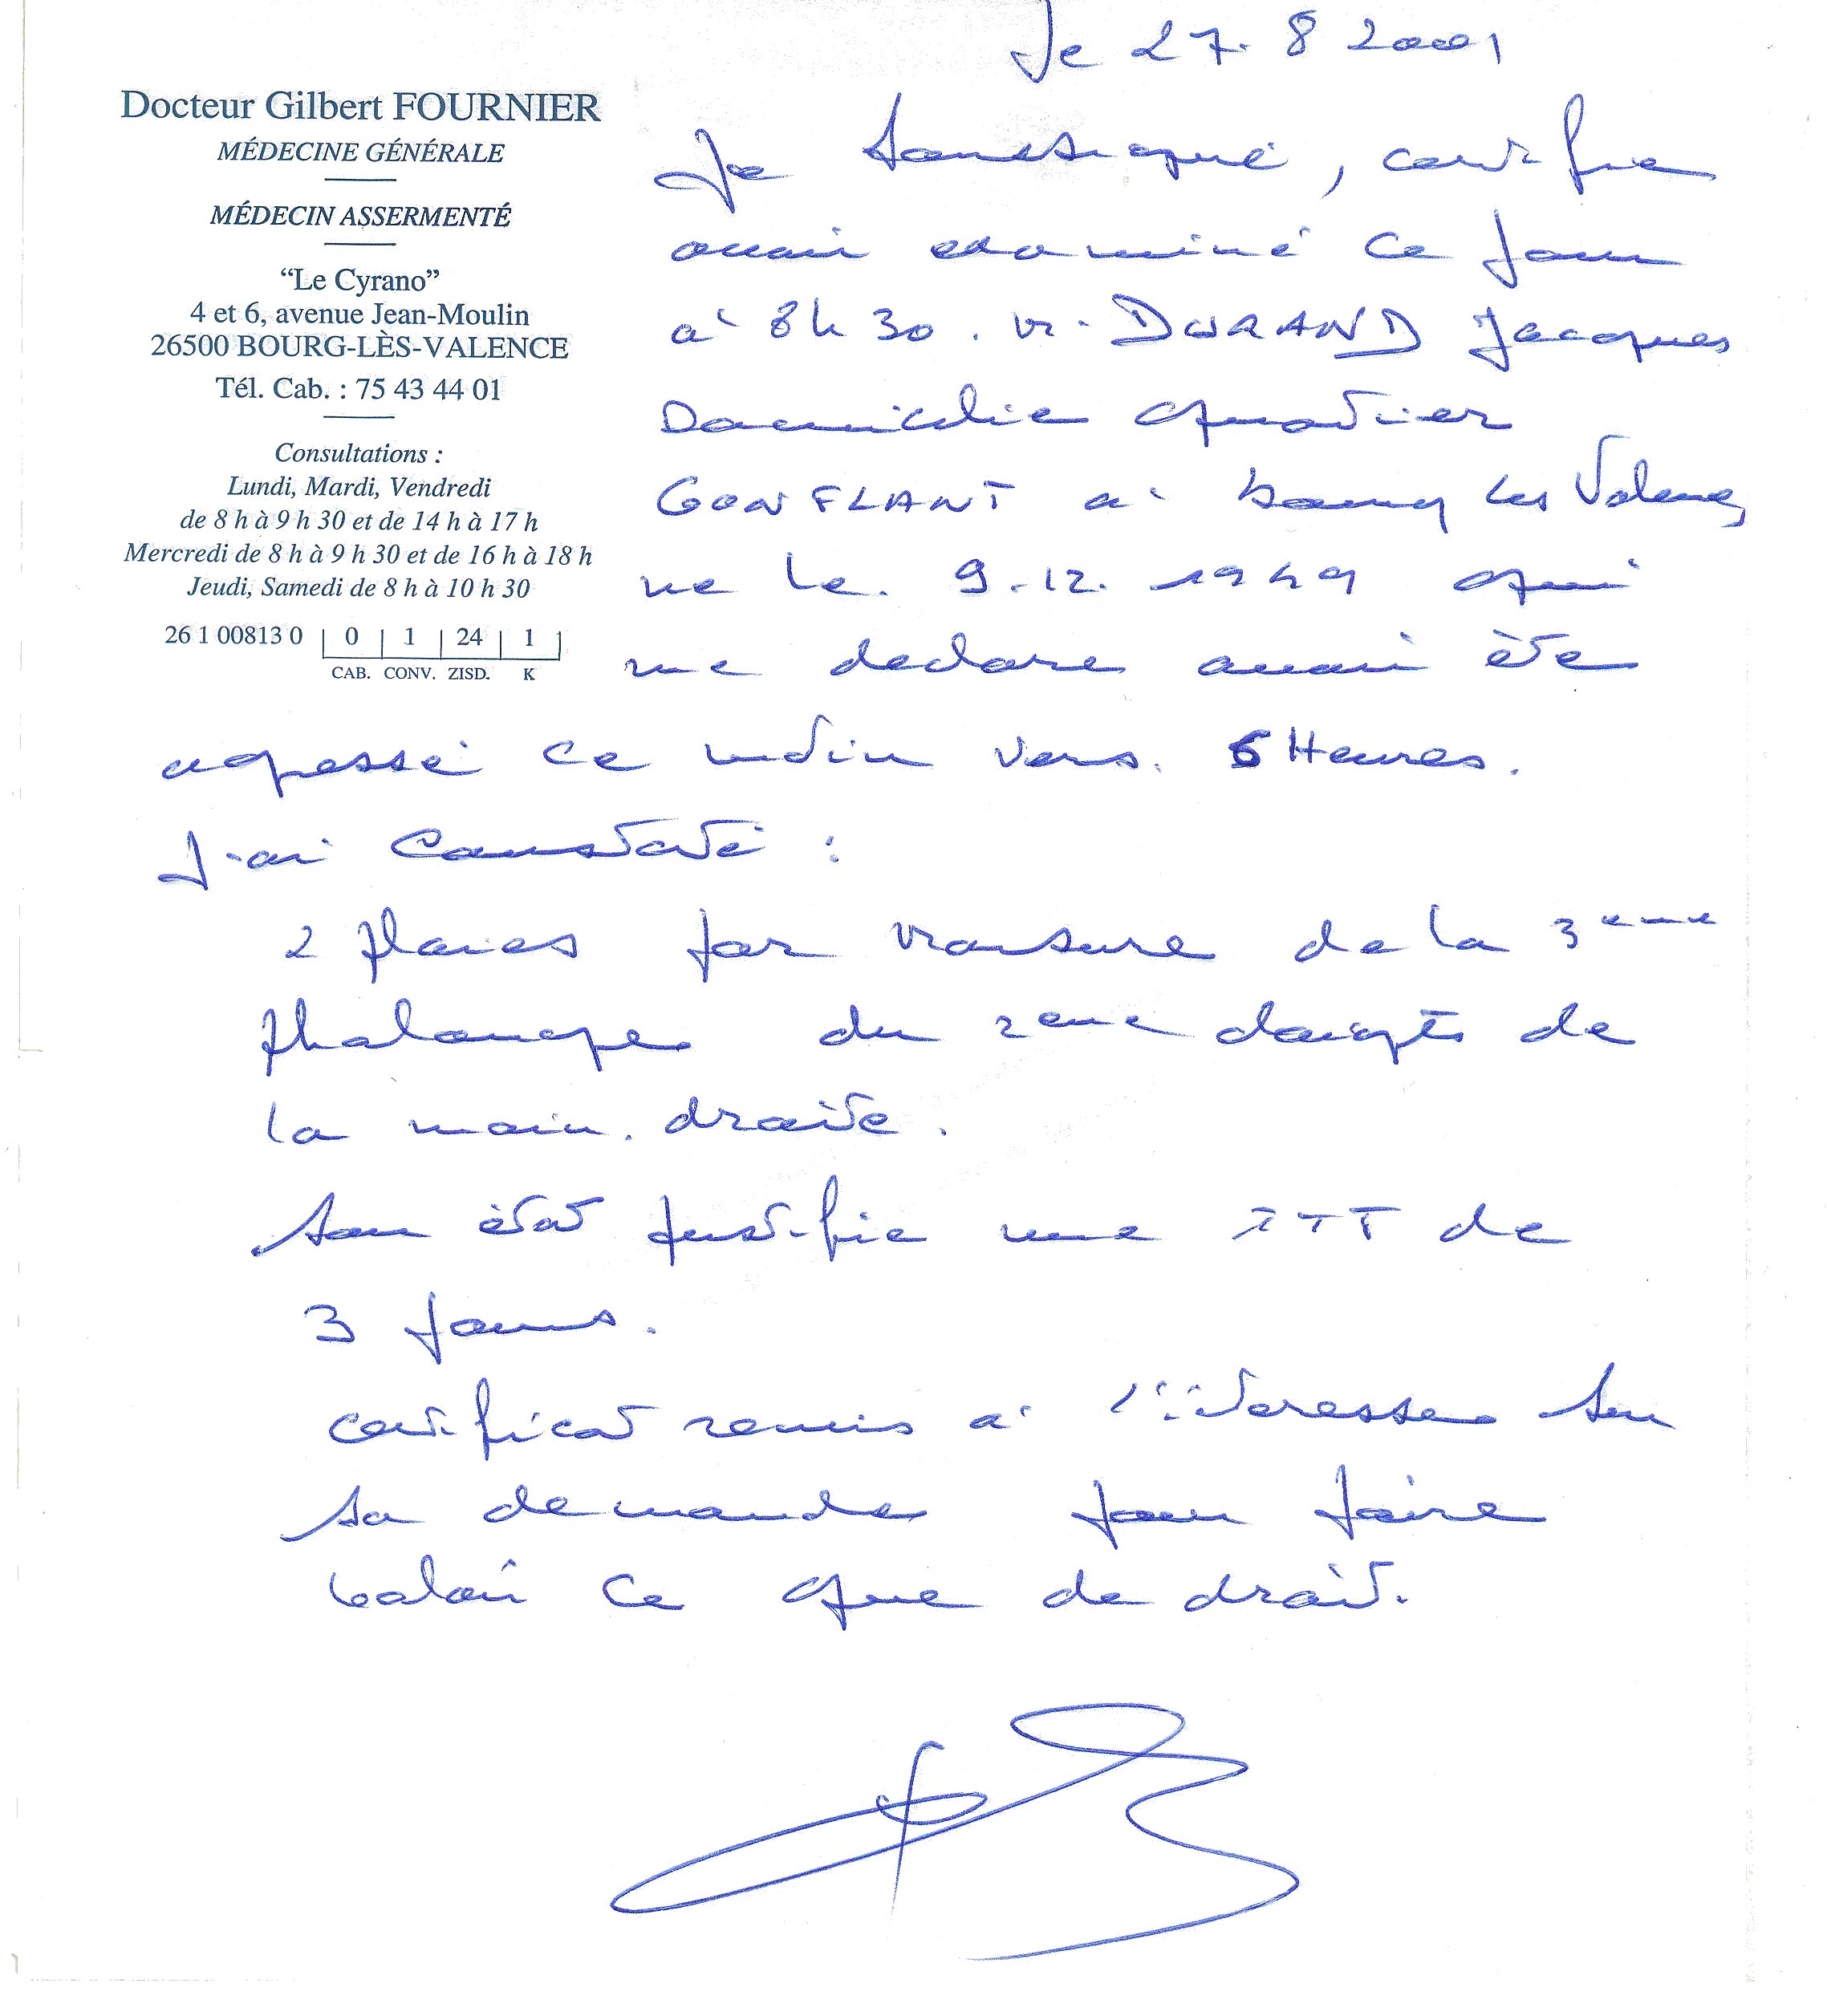 le 27. 8 2001
Docteur Gilbert FOURNIER
MÉDECINE GÉNÉRALE
MÉDECIN ASSERMENTÉ
“Le Cyrano”
4 et 6, avenue Jean-Moulin
26500 BOURG-LÈS-VALENCE
Tél. Cab. : 75 43 44 01
Consultations :
Lundi, Mardi, Vendredi
de 8 h à 9 h 30 et de 14 h à 17 h
Mercredi de 8 h à 9 h 30 et de 16 h à 18 h
Jeudi, Samedi de 8 h à 10 h 30
26 1 00813 0 | 0 | 1 | 24 | 1 |
CAB. CONV. ZISD. K
Je soussigné, certifie
avoir examiné ce jour
à 8h30. Mr. DURAND Jacques
Domicilié quartier
GONFLANT à bourg les Valence,
né le. 9.12. 1949 qui
me declare avoir été
agressé ce matin vers. 6 Heures.
J'ai constaté :
2 plaies par morsure de la 3eme
phalange du 2eme doigts de
la main. droite.
son état justifie une ITT de
3 jours.
certificat remis à l'interessé sur
sa demande pour faire
valoir ce que de droit.